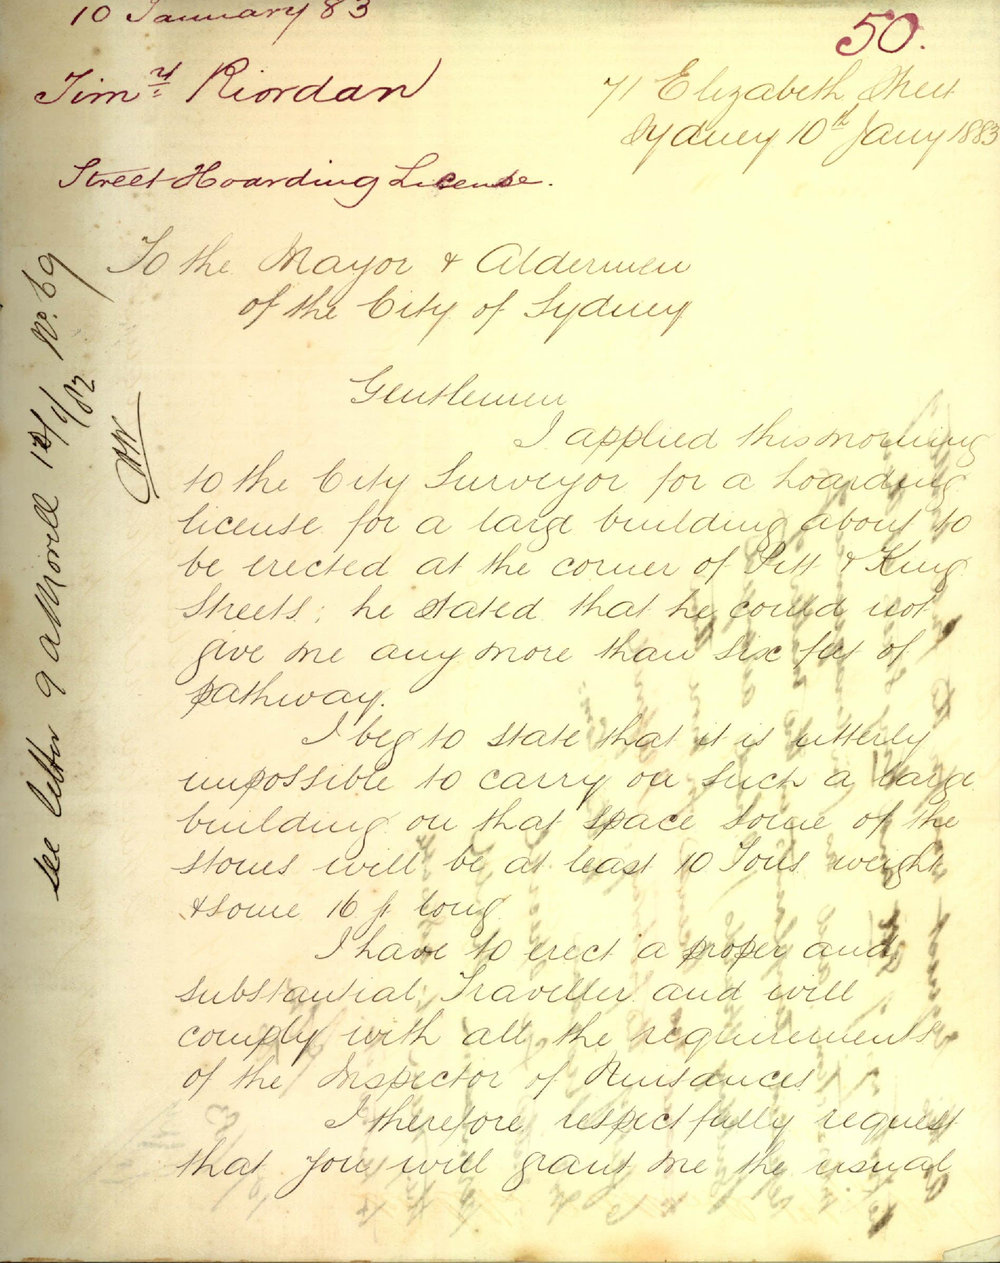 10 January 83
50.
Timy Riordan
71 Elizabeth Street
Sydney 10th Jany 1883
Street Hoarding License.
To the Mayor & Aldermen
of the City of Sydney
Gentlemen
I applied this morning
to the City Surveyor for a hoarding
license for a large building about to
be erected at the corner of Pitt & King
Streets; he stated that he could not
give me any more than six feet of
pathway.
I beg to state that it is utterly
impossible to carry on such a large
building on that space some of the
stones will be at least 10 Tons weight
& some 16 ft long
I have to erect a proper and
substantial Traveller and will
comply with all the requirements
of the Inspector of Nuisances
I therefore respectfully request
that you will grant me the usual
see letter 9 a Morell No. 69